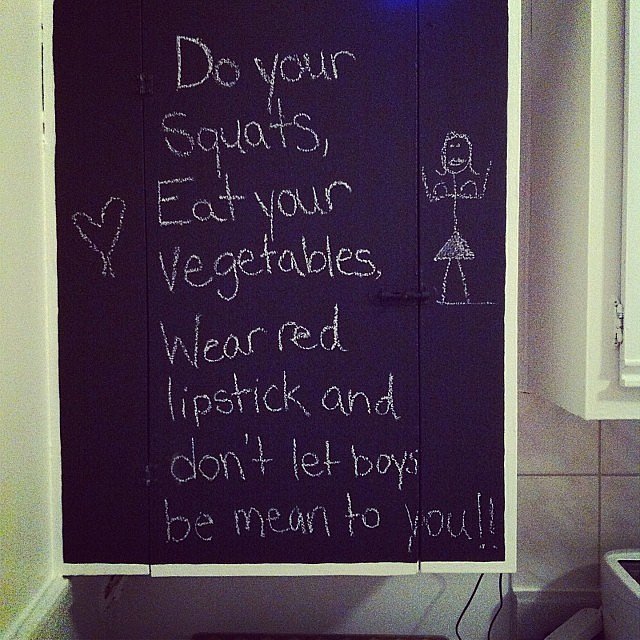 Do your
Squats,
Eat your
vegetables,
Wear red
lipstick and
don't let boys
be mean to you!!